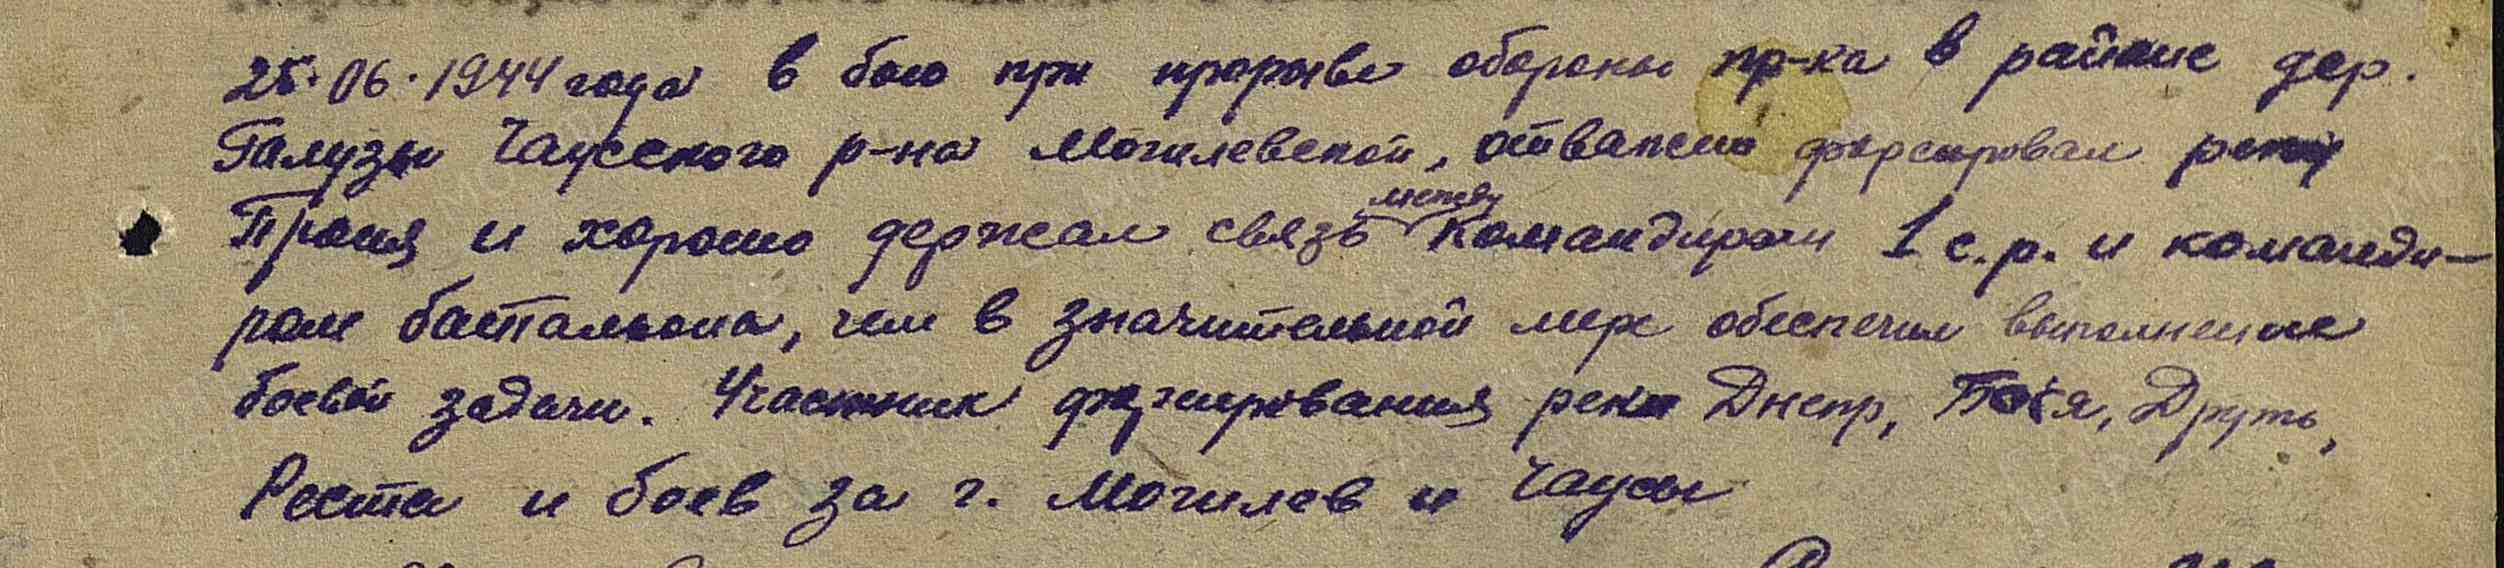 25.06.1944 года в бою при прорыве обороны пр-ка в районе дер.
Галузы Чаусского р-на Могилевской, отважно форсировал реку
Проня и хорошо держал связь между командиром 1 с.р. и команди-
ром батальона, чем в значительной мере обеспечил выполнение
боевой задачи. Участник форсирования реки Днепр, Друть,
Реста и боев за г. Могилев и Чаусы